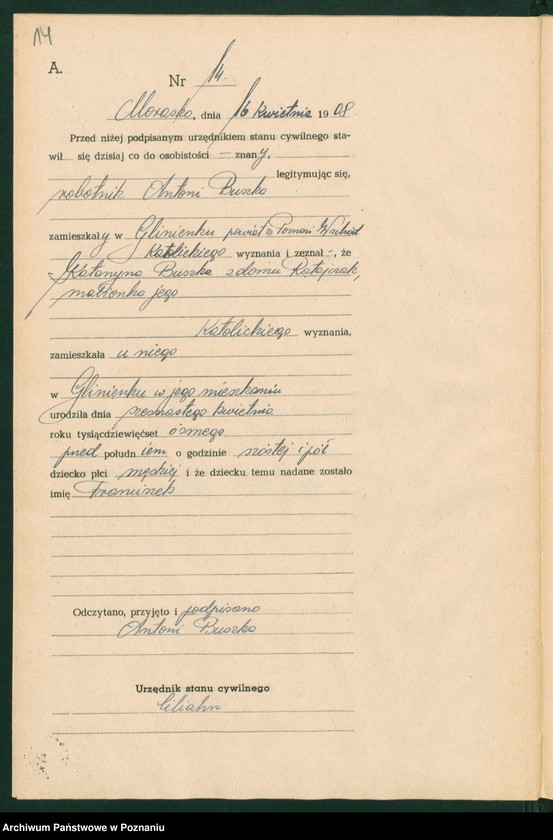 14
A.
Nr 14.
Morasko, dnia 16 kwietnia 1908
Przed niżej podpisanym urzędnikiem stanu cywilnego sta-
wił — się dzisiaj co do osobistości — znany,
legitymując się,
robotnik Antoni Buszka
zamieszkały w Glinienku powiat Poznań Wschód
Katolickiego wyznania i zeznał —, że
Katarzyna Buszka z domu Ratajczak,
małżonka jego
Katolickiego wyznania,
zamieszkała u niego
w Glinienku w jego mieszkaniu
urodziła dnia szesnastego kwietnia
roku tysiącdziewięćset ósmego
przed południem o godzinie szóstej i pół
dziecko płci męskiej i że dziecku temu nadane zostało
imię Franciszek
Odczytano, przyjęto i podpisano
Antoni Buszka
Urzędnik stanu cywilnego
Archiwum Państwowe w Poznaniu